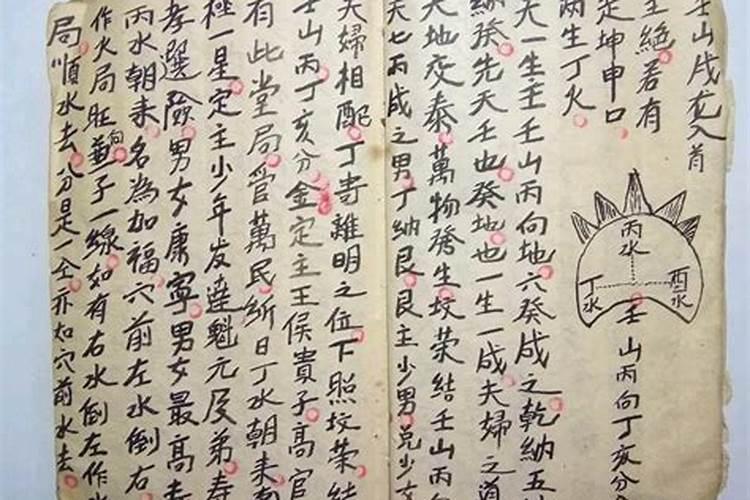 壬山戌龙入首
主絶若有
是坤申口
两生丁火
丙水
丁水
酉水
壬山丙向丁亥分
天一生壬壬山丙向地六癸成之乾納五
納癸先天壬也癸地也一生一成夫婦之道
天地交泰萬物發生坟荣結壬山丙
天七丙成之男丁納艮艮主少男兑少女
夫婦相配丁寄離明之位下照坟荣結
壬山丙丁亥分金定主王侯貴子高官
有此堂局管萬民斩日丁水朝来
極一星定主少年发達魁元及弟寿
孝選險男女康寧男女最高
丙水朝来名為加福穴前左水倒右
作火局旺向兼子一線如有右水倒左作
局順水去分是一仝亦如穴前水去